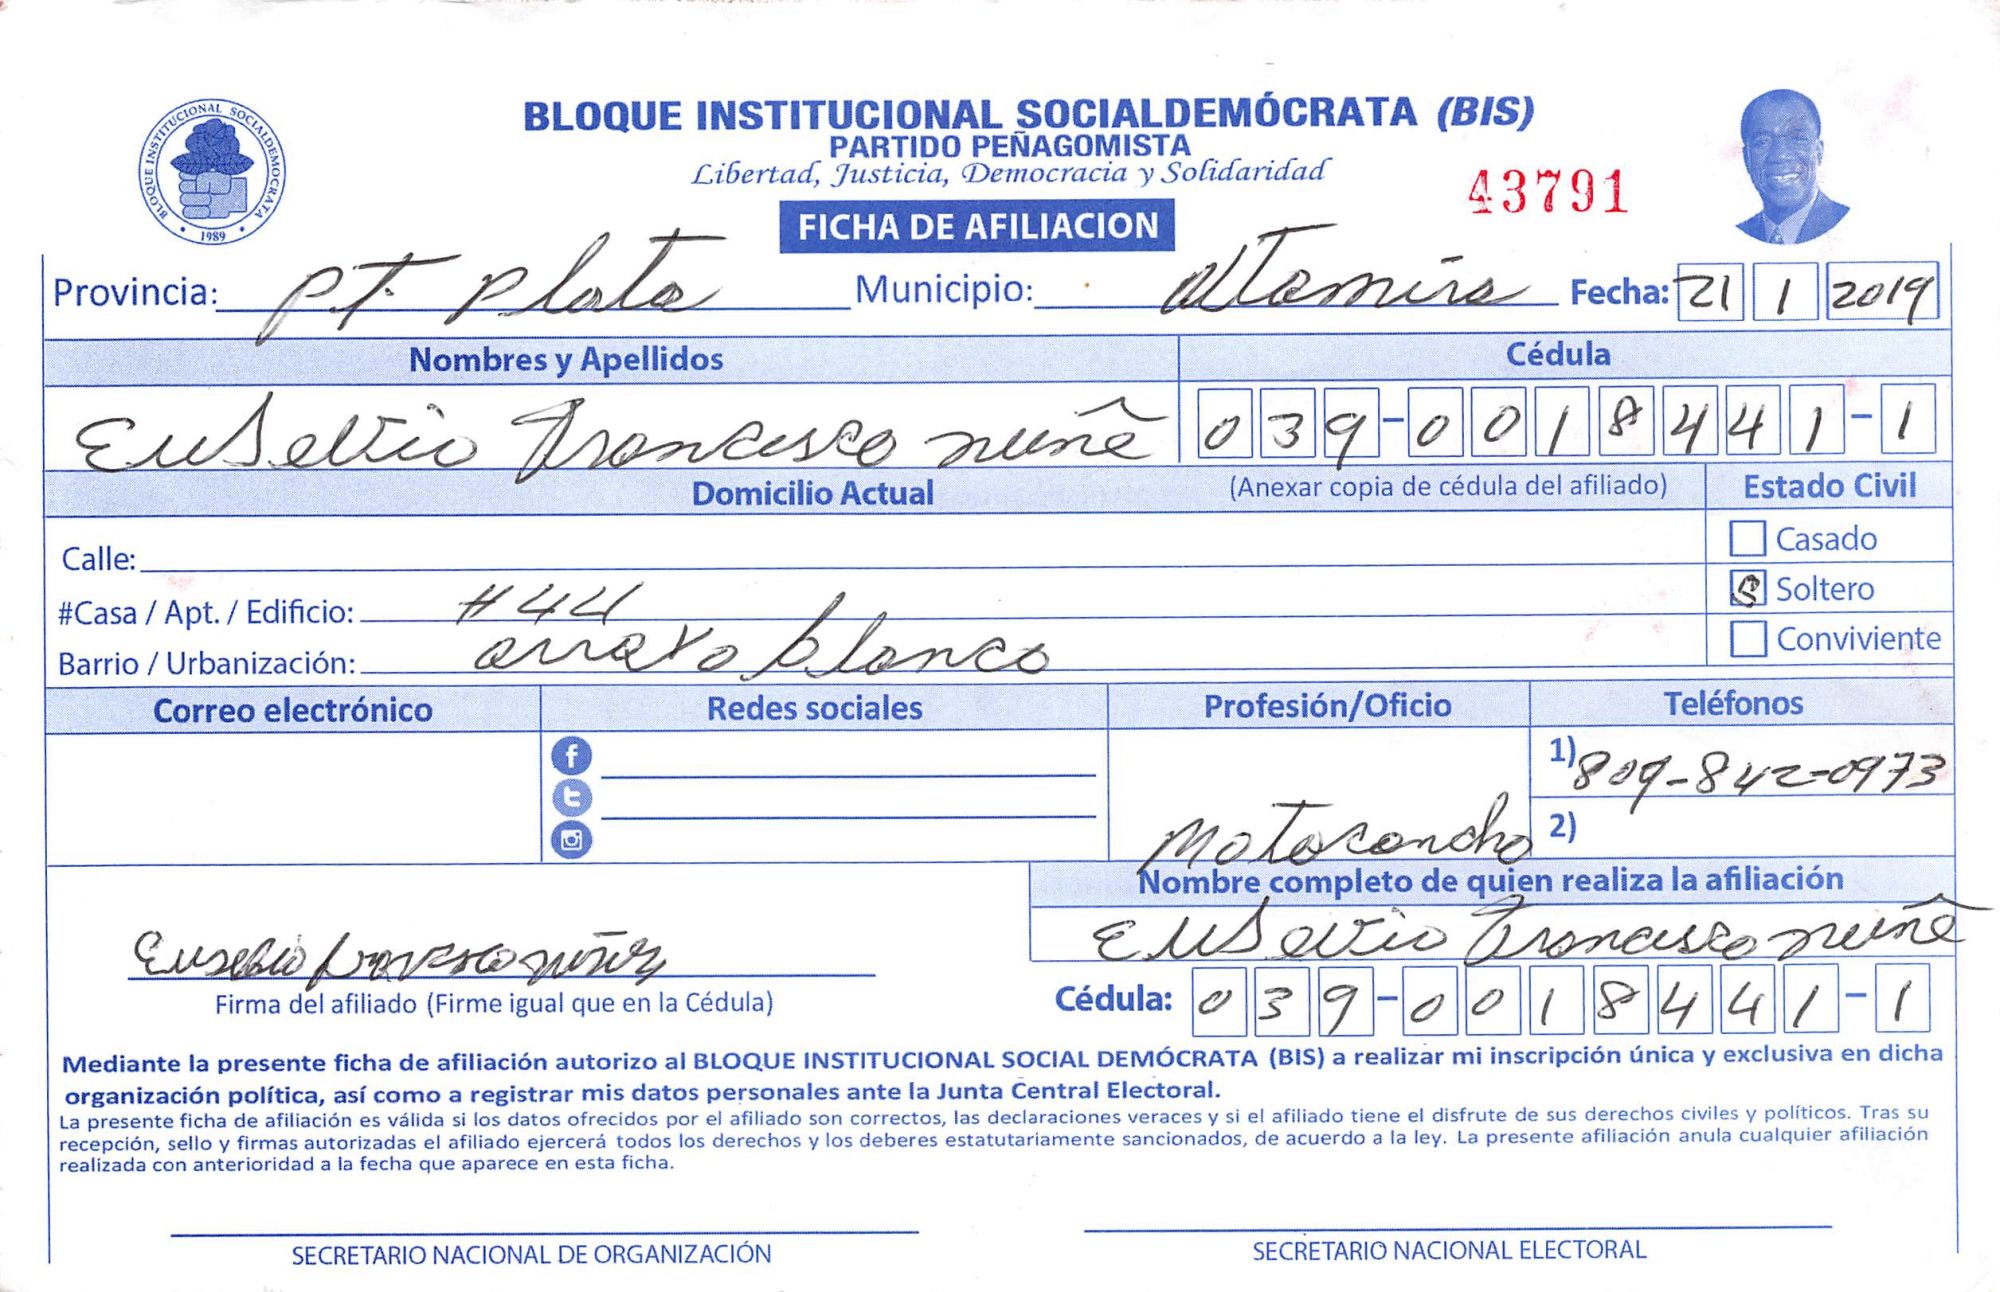 BLOQUE INSTITUCIONAL SOCIALDEMOCRATA
1989
BLOQUE INSTITUCIONAL SOCIALDEMÓCRATA (BIS)
PARTIDO PEÑAGOMISTA
Libertad, Justicia, Democracia y Solidaridad
43791
FICHA DE AFILIACION
Provincia: PT. Plata Municipio: altamira Fecha: 21 1 2019
Nombres y Apellidos Cédula
Euselvio Francisco nuñe 039-0018441-1
Domicilio Actual (Anexar copia de cédula del afiliado) Estado Civil
Calle: Casado
#Casa / Apt. / Edificio: #44 S Soltero
Barrio / Urbanización: arrayo blanco Conviviente
Correo electrónico Redes sociales Profesión/Oficio Teléfonos
1) 809-842-0973
Motoconcho 2)
Nombre completo de quien realiza la afiliación
Euselvio Francisco nuñe
Eusebio Francisco nuñez
Firma del afiliado (Firme igual que en la Cédula) Cédula: 039-0018441-1
Mediante la presente ficha de afiliación autorizo al BLOQUE INSTITUCIONAL SOCIAL DEMÓCRATA (BIS) a realizar mi inscripción única y exclusiva en dicha
organización política, así como a registrar mis datos personales ante la Junta Central Electoral.
La presente ficha de afiliación es válida si los datos ofrecidos por el afiliado son correctos, las declaraciones veraces y si el afiliado tiene el disfrute de sus derechos civiles y políticos. Tras su
recepción, sello y firmas autorizadas el afiliado ejercerá todos los derechos y los deberes estatutariamente sancionados, de acuerdo a la ley. La presente afiliación anula cualquier afiliación
realizada con anterioridad a la fecha que aparece en esta ficha.
SECRETARIO NACIONAL DE ORGANIZACIÓN SECRETARIO NACIONAL ELECTORAL